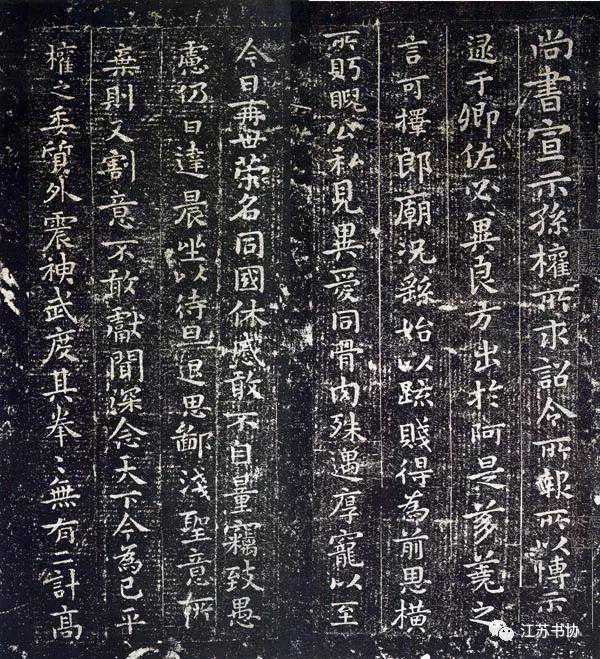 尚書宣示孫權所求詔令所報所以博示
逮于卿佐必冀良方出於阿是芻蕘之
言可擇郎廟況繇始以疏賤得為前恩橫
所盻睨公私見異愛同骨肉殊遇厚寵以至
今日再世榮名同國休慼敢不自量竊致愚
慮仍日達晨坐以待旦退思鄙淺聖意所
棄則又割意不敢獻聞深念天下今為已平
權之委質外震神武度其拳〻無有二計高
江苏书协